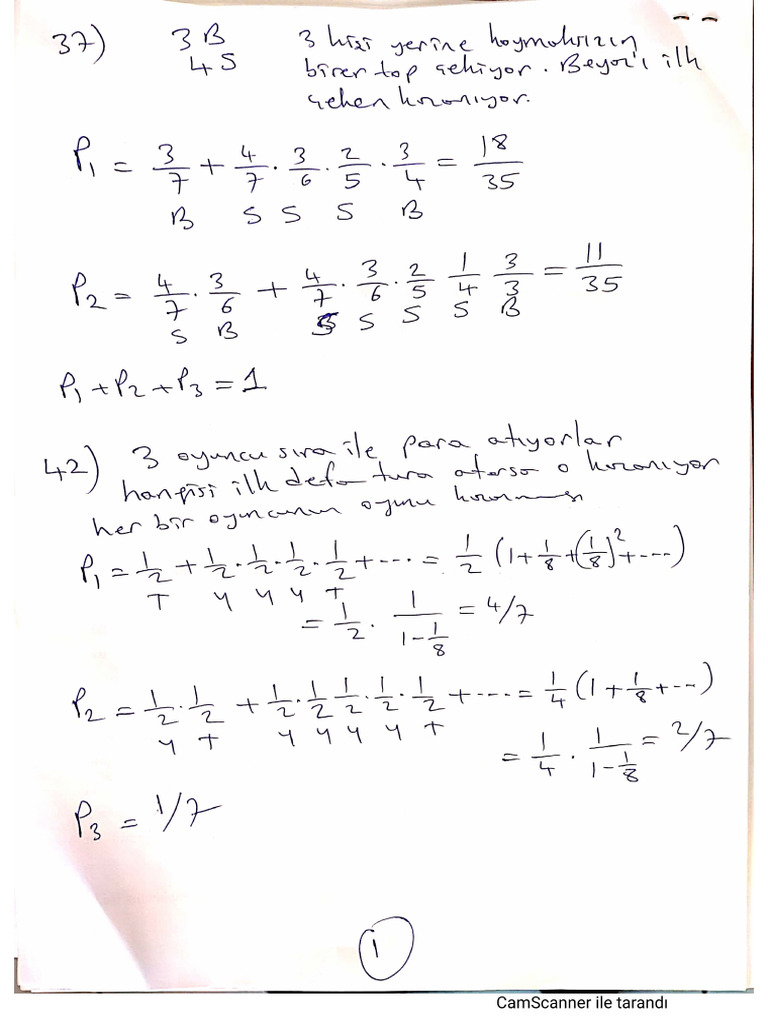 37) 3B 3 kişi yerine koymaksızın
4S birer top çekiyor. Beyaz'ı ilk
çeken kazanıyor.
P₁ = 3/7 + 4/7 · 3/6 · 2/5 · 3/4 = 18/35
B S S S B
P₂ = 4/7 · 3/6 + 4/7 · 3/6 · 2/5 1/4 3/3 = 11/35
S B S S S S B
P₁ + P₂ + P₃ = 1
42) 3 oyuncu sıra ile para atıyorlar
hangisi ilk defa tura atarsa o kazanıyor
her bir oyuncunun oyunu kazanması
P₁ = 1/2 + 1/2 · 1/2 · 1/2 · 1/2 + ···· = 1/2 (1 + 1/8 + (1/8)² + ----)
T Y Y Y T
= 1/2 · 1/(1 - 1/8) = 4/7
P₂ = 1/2 · 1/2 + 1/2 · 1/2 1/2 · 1/2 · 1/2 + ---- = 1/4 (1 + 1/8 + ---)
Y T Y Y Y Y T
= 1/4 · 1/(1 - 1/8) = 2/7
P₃ = 1/7
1
CamScanner ile tarandı